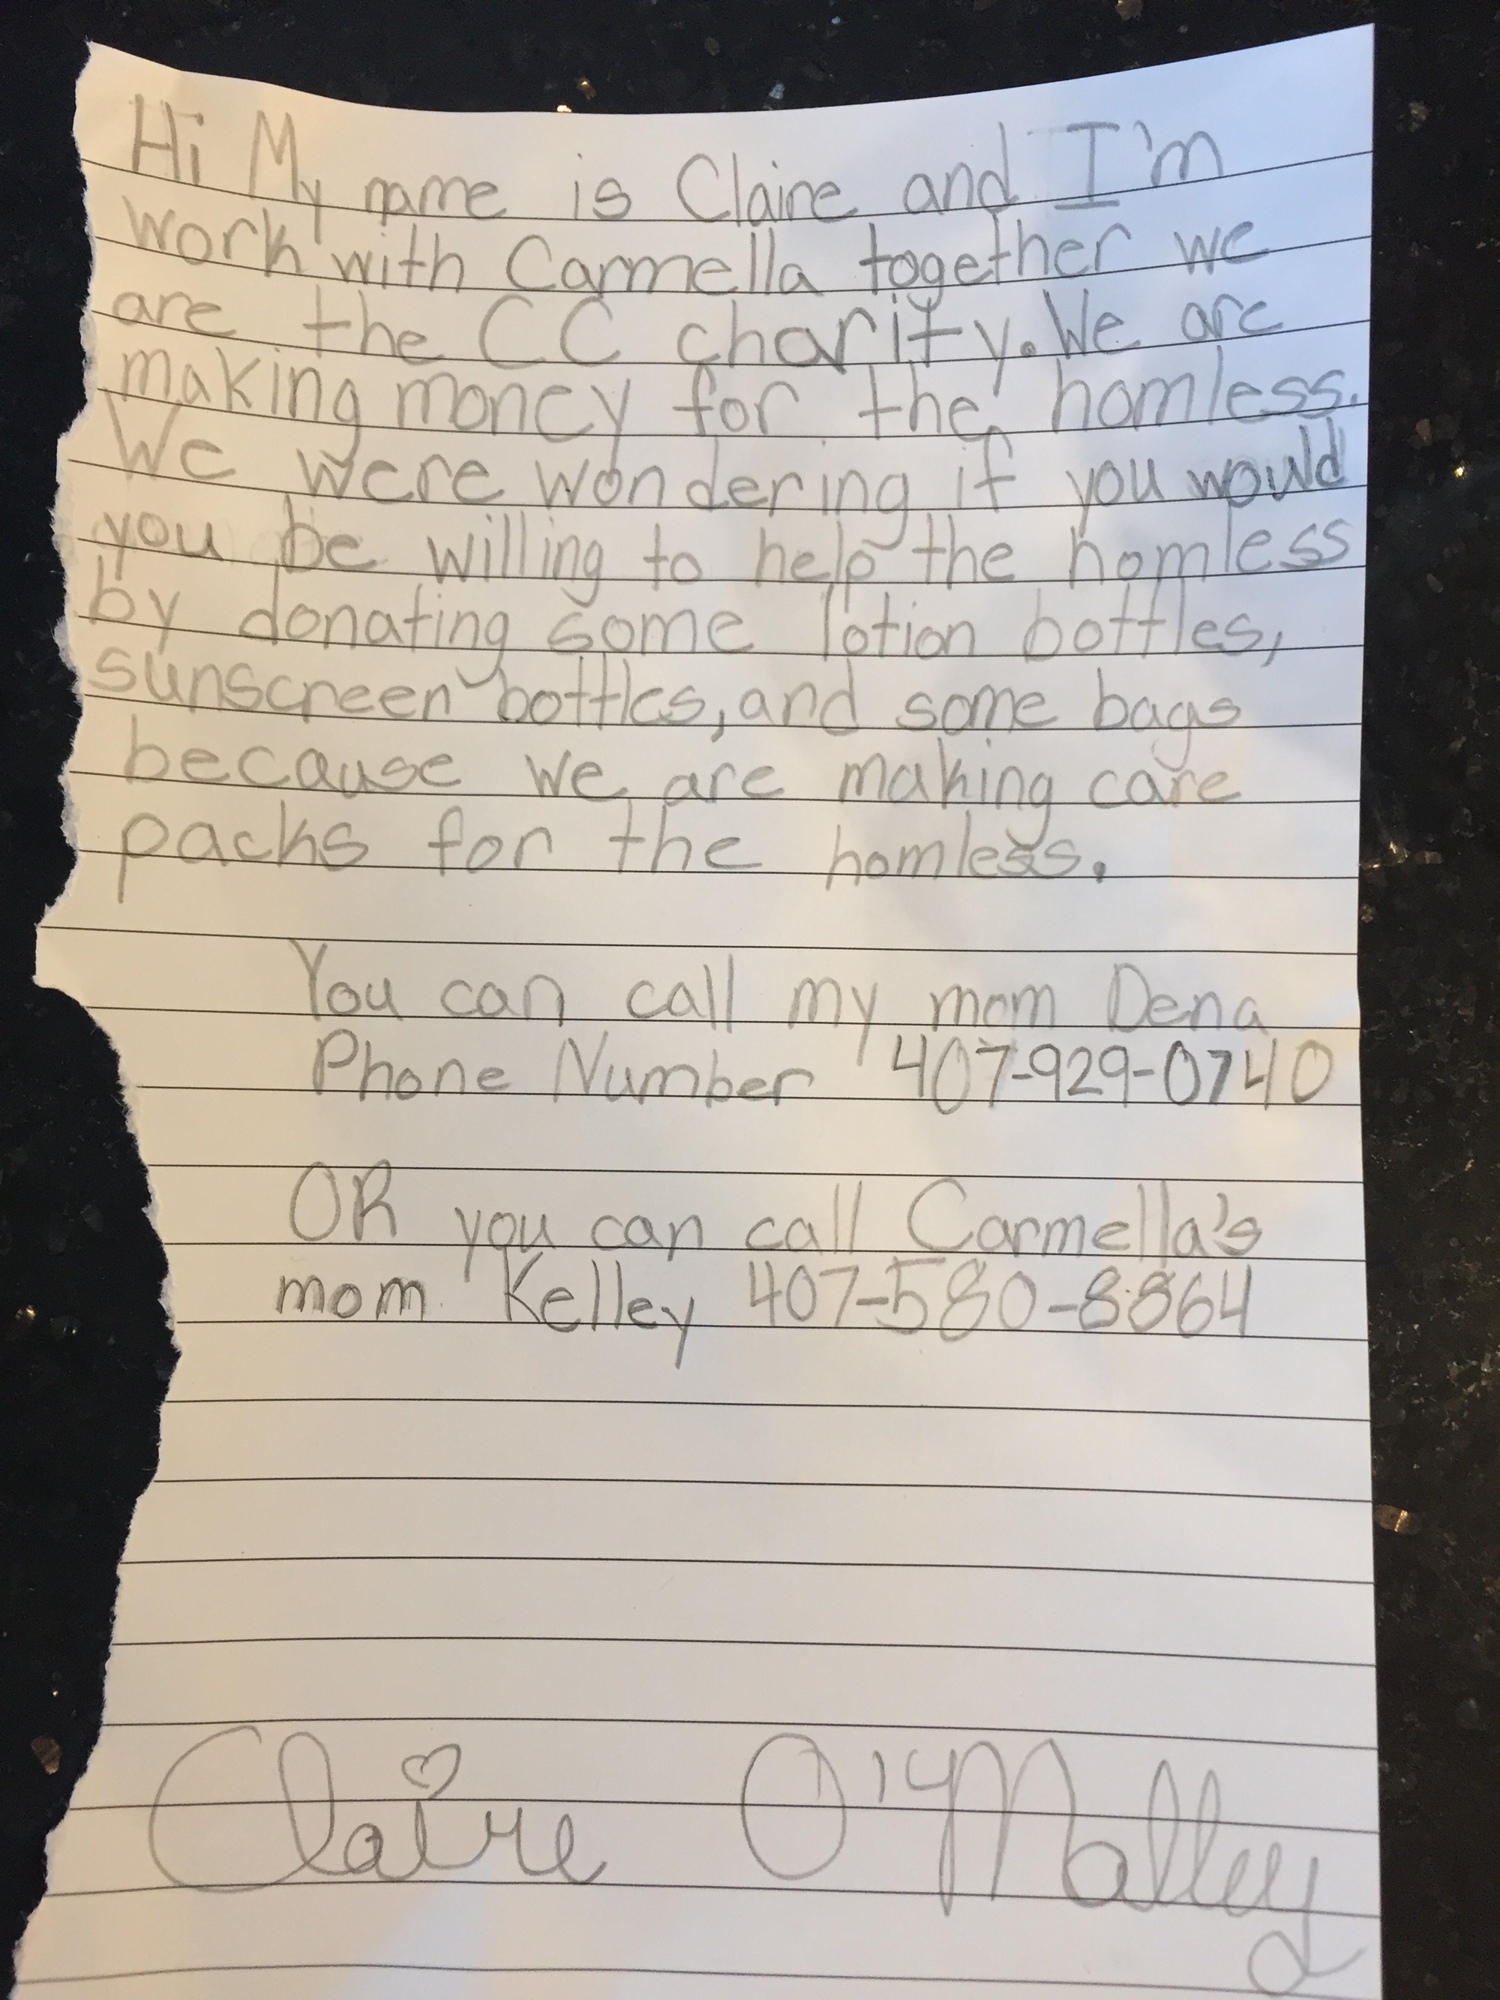 Hi My name is Claire and I'm
work with Carmella together we
are the CC charity. We are
making money for the homless.
We were wondering if you would
you be willing to help the homless
by donating some lotion bottles,
sunscreen bottles, and some bags
because we are making care
packs for the homless.
You can call my mom Dena
Phone Number 407-929-0740
OR you can call Carmella's
mom Kelley 407-580-8864
Claire O'Malley